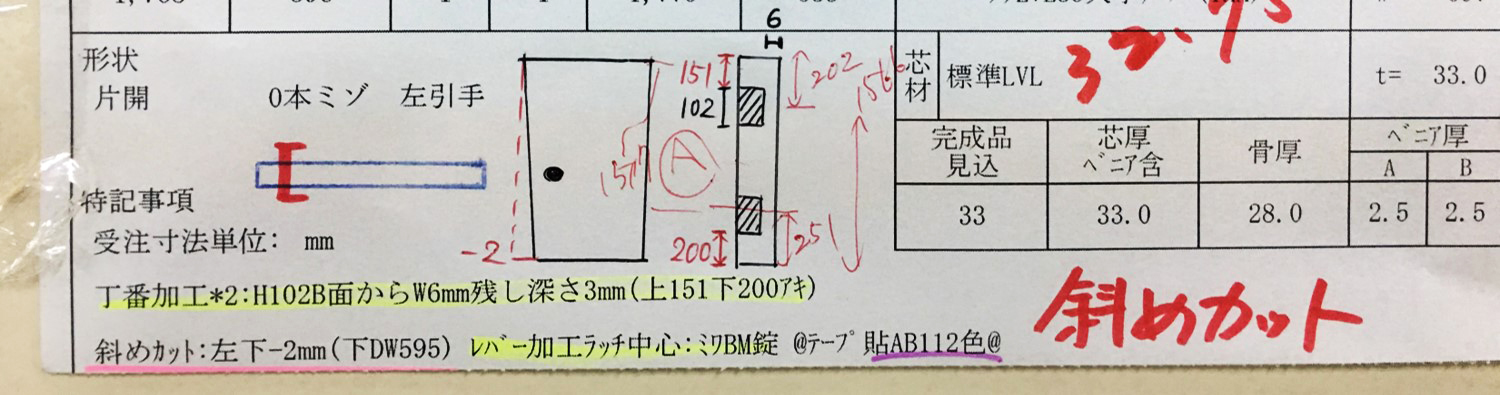 形状
片開 0本ミゾ 左引手
特記事項
受注寸法単位: mm
6
151
102
202
A
1577
200
251
-2
芯材 標準LVL t= 33.0
完成品見込 芯厚ベニア含 骨厚 ベニア厚
A B
33 33.0 28.0 2.5 2.5
丁番加工*2:H102B面からW6mm残し深さ3mm(上151下200アキ)
斜めカット:左下-2mm(下DW595) レバー加工ラッチ中心:ミワBM錠 @テープ貼AB112色@
斜めカット